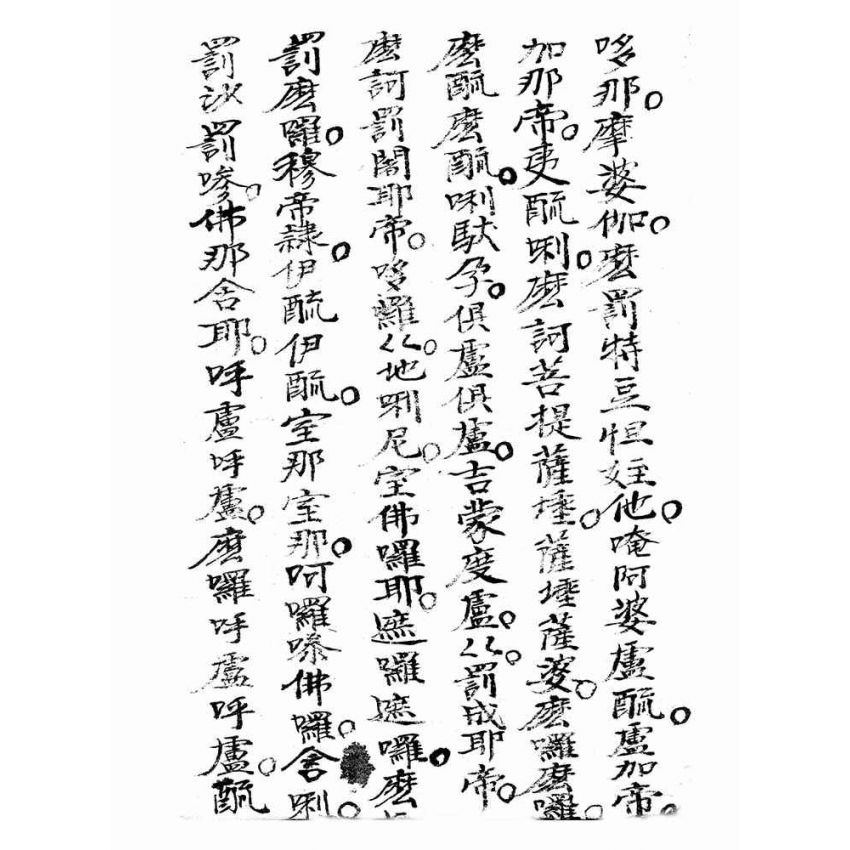 哆那。摩婆伽。麼罰特豆怛姪他。唵阿婆盧酼。盧加帝。
加那帝。夷酼唎。麼訶菩提薩埵。薩埵薩婆。麼囉麼囉。
麼酼麼酼。唎馱孕。俱盧俱盧。吉蒙度盧。〻。罰成耶帝。
麼訶罰闍耶帝。哆囉〻。地唎尼。室佛囉耶。遮囉遮囉。麼
罰麼囉。穆帝隸。伊酼伊酼。室那室那。呵囉嘇佛囉。舍唎。
罰沙罰嘇。佛那舍耶。呼盧呼盧。麼囉呼盧呼盧。酼